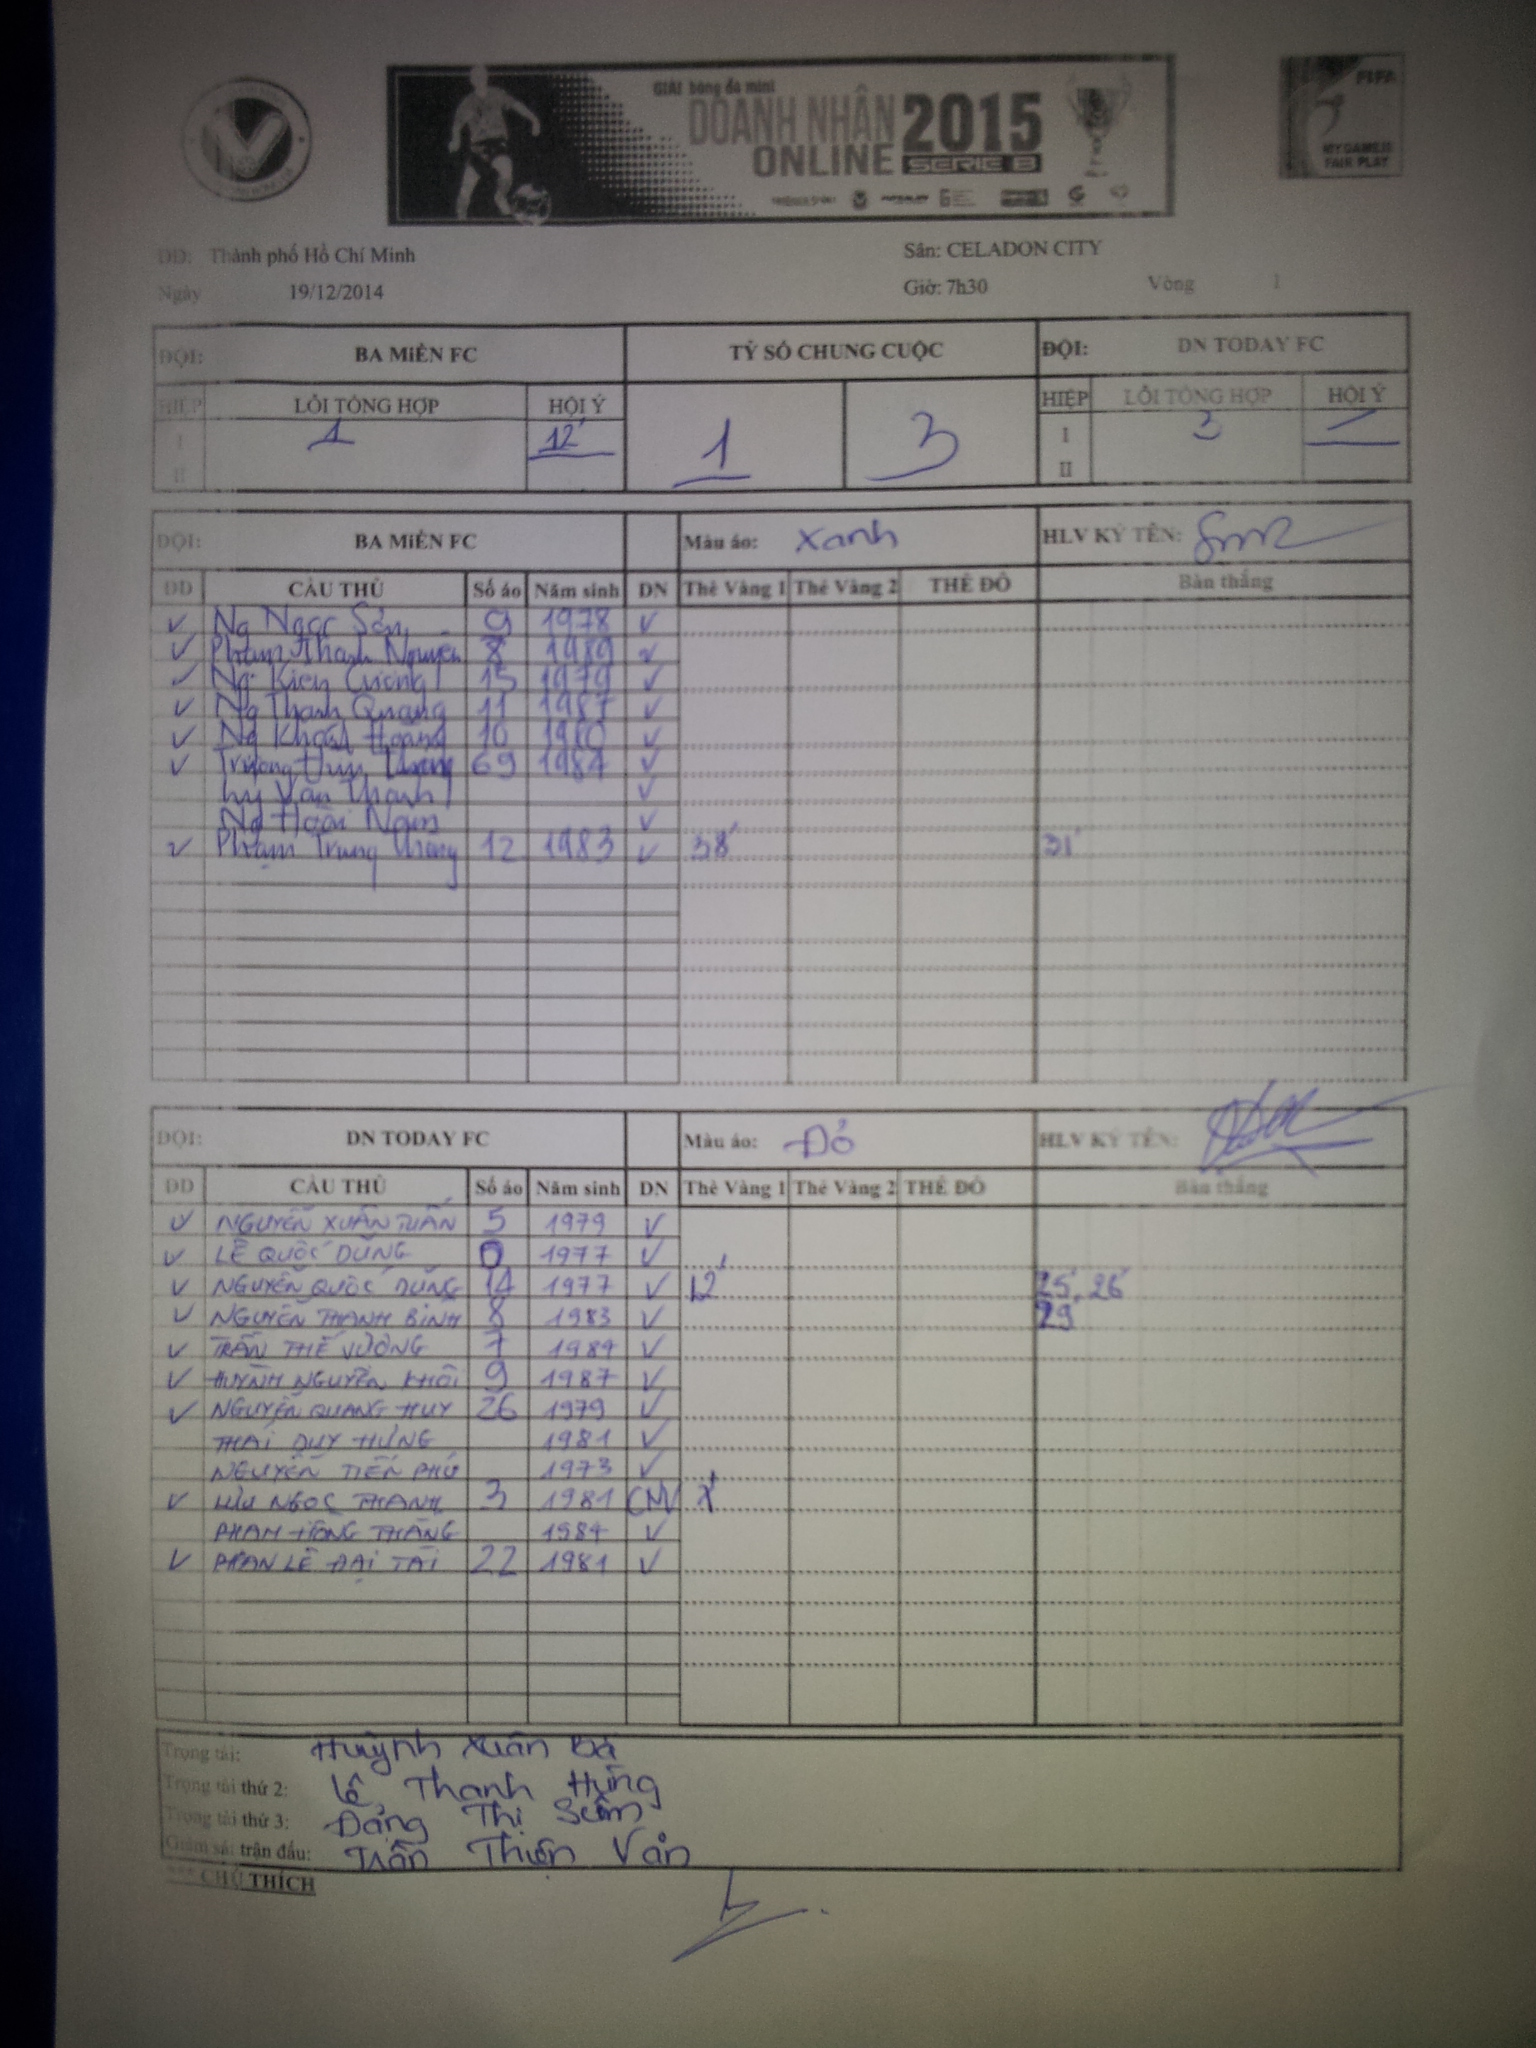 GIẢI bóng đá mini
DOANH NHÂN 2015
ONLINE SERIE B
FIFA
MY GAME IS
FAIR PLAY
DD: Thành phố Hồ Chí Minh Sân: CELADON CITY
Ngày 19/12/2014 Giờ: 7h30 Vòng 1
ĐỘI: BA MIỀN FC TỶ SỐ CHUNG CUỘC ĐỘI: DN TODAY FC
HIỆP LỖI TỔNG HỢP HỘI Ý HIỆP LỖI TỔNG HỢP HỘI Ý
I 1 12' 1 3 I 3
II II
ĐỘI: BA MIỀN FC Màu áo: Xanh HLV KÝ TÊN:
DD CẦU THỦ Số áo Năm sinh DN Thẻ Vàng 1 Thẻ Vàng 2 THẺ ĐỎ Bàn thắng
✓ Ng Ngọc Sản 9 1978 ✓
✓ Phạm Thanh Nguyên 8 1989 ✓
✓ Ng Kiên Cường 15 1979 ✓
✓ Ng Thanh Quang 11 1987 ✓
✓ Ng Khoát Hoàng 10 1980 ✓
✓ Trương Huy 69 1984 ✓
Lý Văn Thanh ✓
Ng Hoài Nam ✓
✓ Phạm Trung 12 1983 ✓ 38' 31'
ĐỘI: DN TODAY FC Màu áo: Đỏ HLV KÝ TÊN:
DD CẦU THỦ Số áo Năm sinh DN Thẻ Vàng 1 Thẻ Vàng 2 THẺ ĐỎ Bàn thắng
✓ NGUYỄN XUÂN TUẤN 5 1979 ✓
✓ LÊ QUỐC DŨNG 0 1977 ✓
✓ NGUYỄN QUỐC DŨNG 14 1977 ✓ 12' 25', 26'
✓ NGUYỄN THANH BÌNH 8 1983 ✓ 29
✓ TRẦN THẾ VƯƠNG 7 1984 ✓
✓ HUỲNH NGUYÊN KHÔI 9 1987 ✓
✓ NGUYỄN QUANG HUY 26 1979 ✓
THÁI DUY HƯNG 1981 ✓
NGUYỄN TIẾN PHÚ 1973 ✓
✓ LƯU NGỌC THANH 3 1981 CNV
PHẠM HỒNG THĂNG 1984 ✓
✓ PHAN LÊ ĐẠI TÀI 22 1981 ✓
Trọng tài: Huỳnh Xuân Bá
Trọng tài thứ 2: Lê Thanh Hùng
Trọng tài thứ 3: Đặng Thị
Giám sát trận đấu: Trần Thiện Văn
*** CHÚ THÍCH